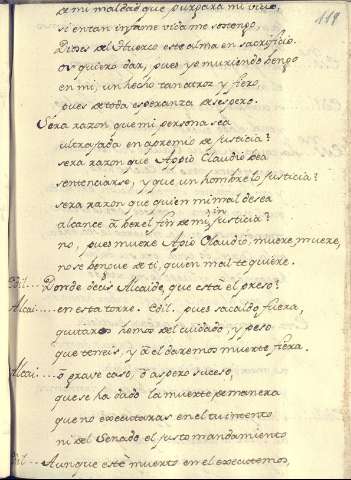 119
de mi maldad que purgara mi vida,
si en tan infame vida me sostengo
Dioses del Huerco este alma en sacrificio
os quiero dar, pues ya muriendo vengo
en mi, un hecho tan atroz y fiero,
pues de toda esperanza desespero.
Será razon que mi persona sea
ultrajada en apremio de justicia?
sera razon que Appio Claudio vea
sentenciarse, y que un hombre lo justicia?
sera razon que quien mi mal desea
alcance à ver el fin de mi injusticia?
no, pues muere Apio Claudio, muere, muere,
no se vengue de ti, quien mal te quiere.
Edil... Donde decis Alcaide, que està el preso?
Alcai... en esta torre. Edil. pues sacaldo fuera,
quitaros hemos del cuidado, y peso
que teneis, y à el daremos muerte fiera.
Alcai... ò grave caso, ò aspero suceso,
que se ha dado la muerte de manera
que no executaras en el tu intento
ni del Senado el justo mandamiento
Edil... Aunque esté muerto en el executemos,